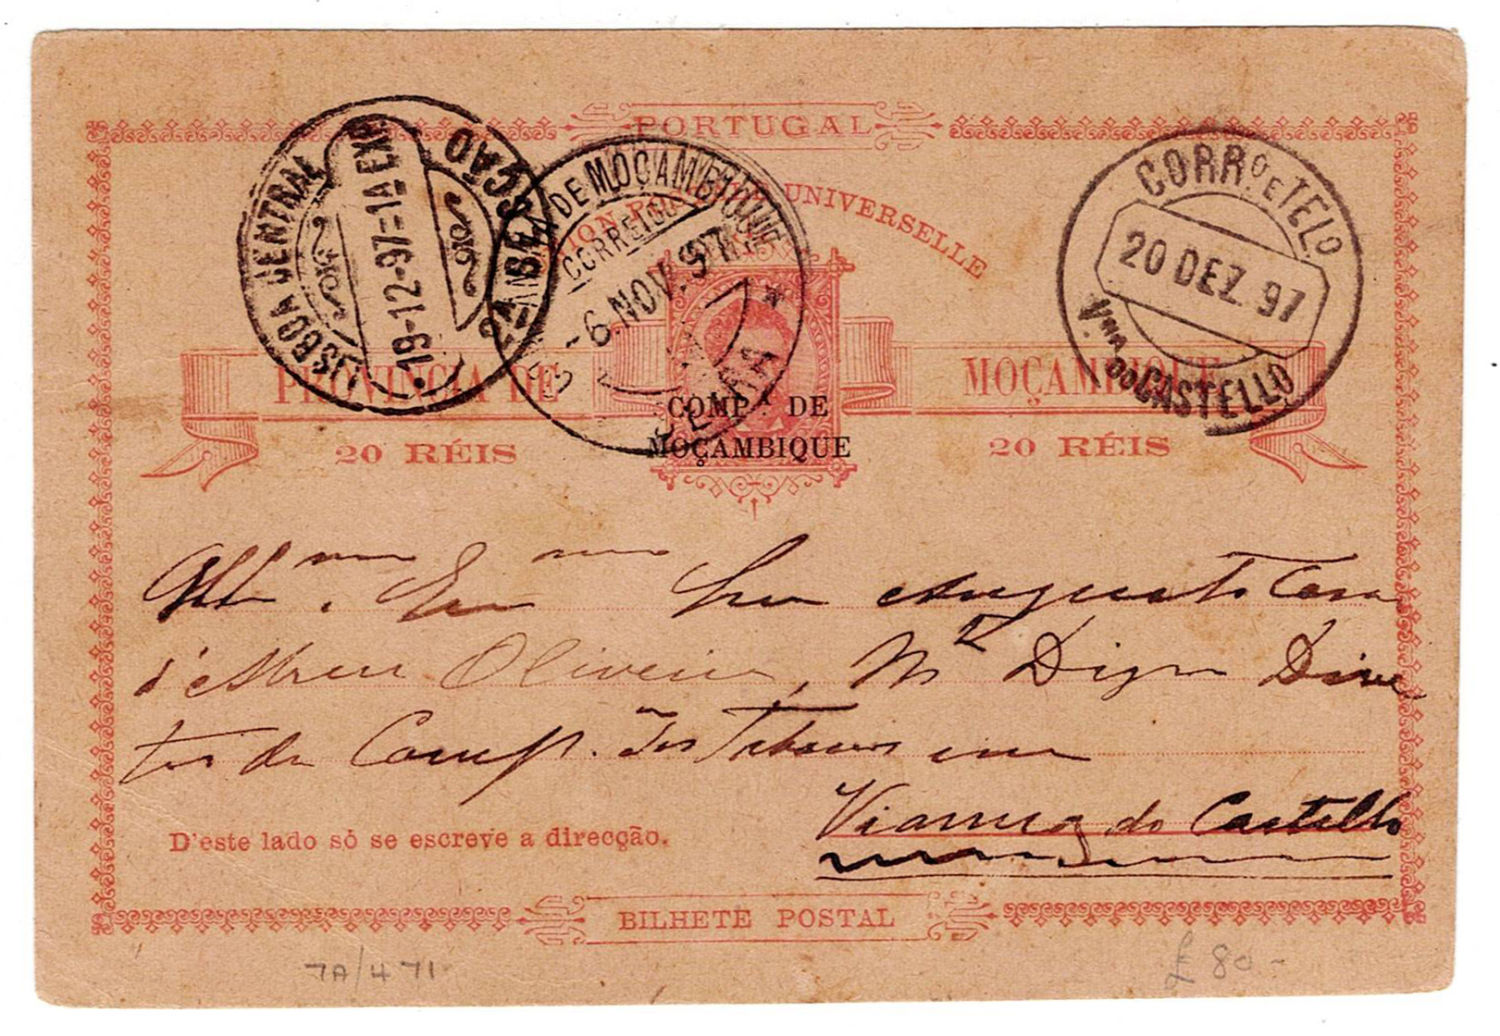 PORTUGAL
UNION POSTALE UNIVERSELLE
LISBOA CENTRAL
2A SECÇÃO
19-12-97=1A EXP
COMPANHIA DE MOÇAMBIQUE
CORREIO
6 NOV. 97
BEIRA
CORRO E TELO
20 DEZ. 97
Vnna DO CASTELLO
PROVINCIA DE MOÇAMBIQUE
20 RÉIS 20 RÉIS
COMPA. DE
MOÇAMBIQUE
Illmo. Exmo Snr Augusto
d'Abreu Oliveira, Mto Digno Dire
tor da Comp. dos Tabacos em
Vianna do Castello
D'este lado só se escreve a direcção.
BILHETE POSTAL
7A/471
£80-